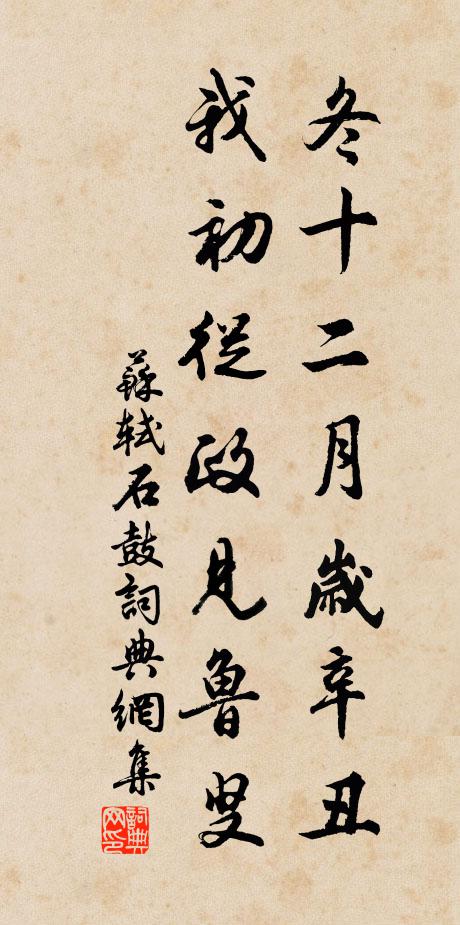 冬十二月歲辛丑
我初從政見魯叟
蘇軾石鼓詞典網集
詞典网印